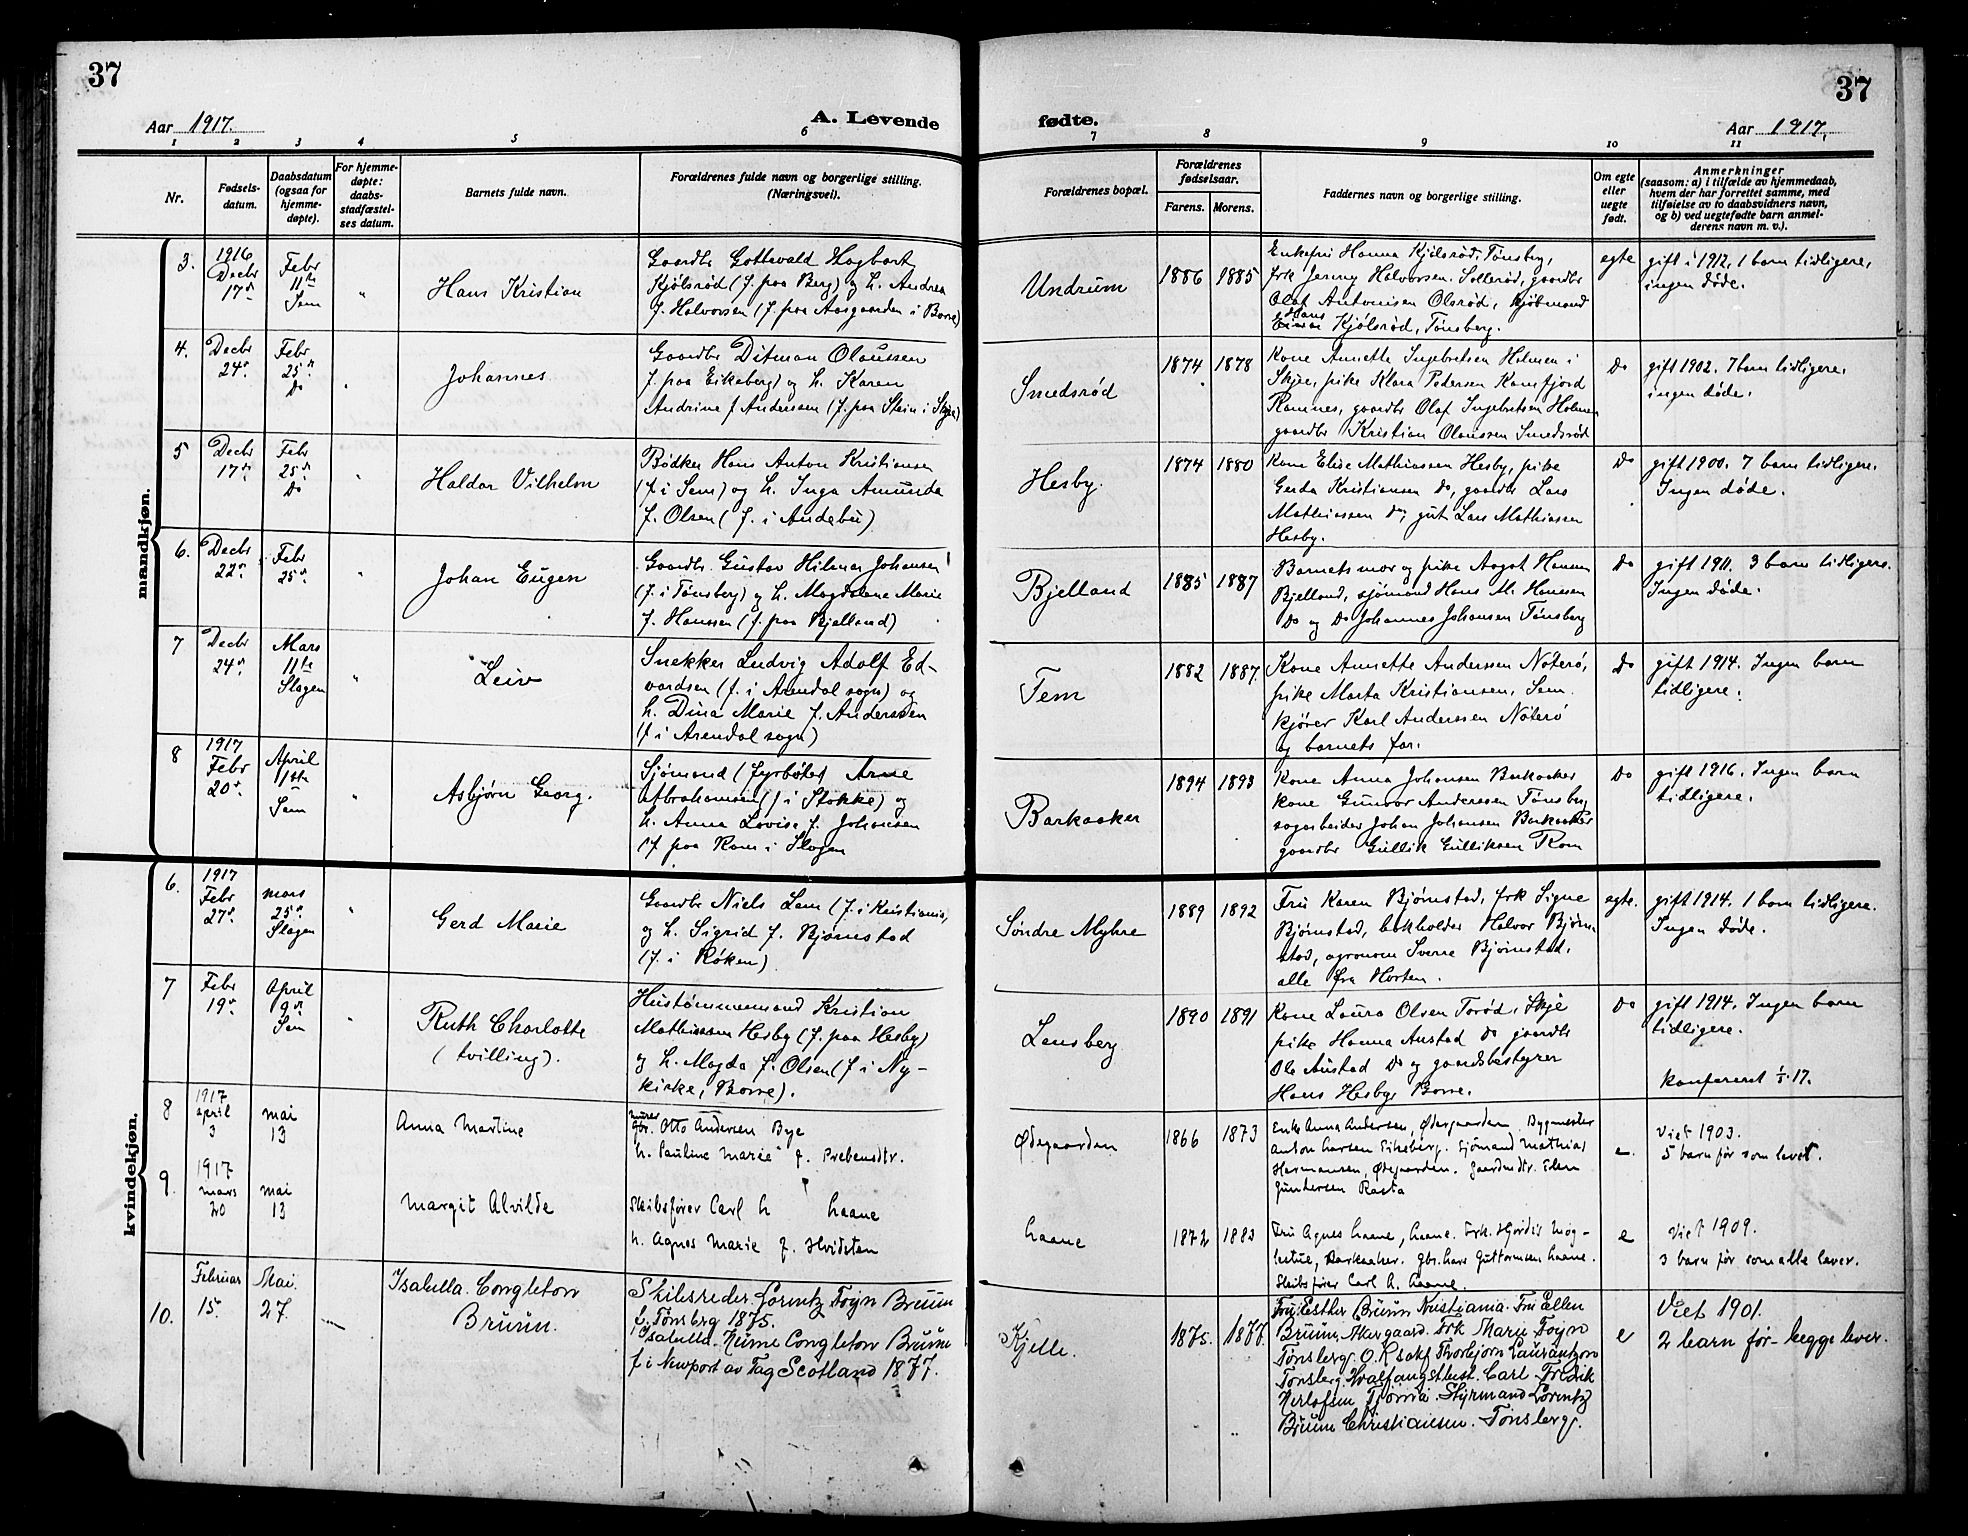 37
Aar 1917.
A. Levende
1 2 3 4 5 6
Nr.
Fødsels-
datum.
Daabsdatum
(ogsaa for
hjemme-
døpte).
For hjemme-
døpte:
daabs-
stadfæstel-
ses datum.
Barnets fulde navn.
Forældrenes fulde navn og borgerlige stilling.
(Næringsvei).
mandkjøn.
3.
1916
Decbr
17de
Febr
11te
Sem
"
Hans Kristian
Gaardbr Gottwald Hagbart
Kjølsrød (f. paa Berg) og h. Andrea
f. Halvorsen (f. paa Aasgaarden i Borre)
4.
Decbr
24de
Febr
25de
Do
Johannes
Gaardbr Ditman Olaussen
f. paa Eikeberg) og h. Karen
Andrine f Anderssen (f. paa Stein i Skjee)
5
Decbr
17de
Febr
25de
Do
Haldor Vilhelm
Bødker Hans Anton Kristiansen
(f i Sem) og h. Inga Amunda
f. Olsen (f. i Andebu)
6.
Decbr
22de
Febr
25de
Johan Eugen
Gaardbr. Gustav Hilmar Johansen
(f. i Tønsberg) og h. Magdalene Marie
f. Hanssen (f. paa Bjelland)
7
Decbr
24de
Mars
11te
Slagen
"
Leiv
Snekker Ludvig Adolf Ed-
vardsen (f. i Arendal sogn) og
h. Dina Marie f. Anderssen
(f i Arendal sogn)
8
1917
Febr
20de
April
1ste
Sem
"
Asbjørn Georg.
Sjømand (fyrbøter) Arne
Abrahamsen (f i Stokke) og
h. Anna Lovise f. Johansen
(f paa Rom i Slagen
kvindekjøn.
6.
1917
Febr
27de
mars
25de
Slagen
"
Gerd Marie
Gaardbr Niels Lem (f. i Kristiania,
og h. Sigrid f. Bjørnstad
(f. i Røken)
7
Febr
19de
April
9de
Sem
"
Ruth Charlotte
(tvilling).
Hustømmermand Kristian
Mathiassen Hesby (f. paa Hesby)
og h. Magda f. Olsen (f i Ny-
kirke, Borre).
8
1917
april
3
mai
13
Anna Martine
gbr. Otto Andersen Bye
h. Pauline Marie f. Prebensdtr.
9.
1917
mars
20
mai
13
Margit Alvilde
Skibsfører Carl h haane
h. Agnes Marie f. Hvidsten
10.
Februar
15.
Mai.
27.
Isabella Congleton
Bruun.
Skibsreder Lorentz Foyn Bruun
f. Tønsberg 1875.
Isabella Hume Congleton Bruun
f i Newport av Tay Scotland 1877.
37
fødte.
Aar 1917.
7 8 9 10 11
Forældrenes bopæl.
Forældrenes
fødselsaar.
Farens. Morens.
Faddernes navn og borgerlige stilling.
Om egte
eller
uegte
født.
Anmerkninger
(saasom: a) i tilfælde av hjemmedaab,
hvem der har forrettet samme, med
tilføielse av to daabsvidners navn,
og b) ved uegtefødte barn anmel-
derens navn m. v.).
Undrum
1886 1885
Enkefru Hanna Kjølsrød, Tønsberg,
frk Jenny Halvorsen Sollerød, gaardbr
Olaf Antonisen Olsrød, kjøbmand
Hans
Kjølsrød, Tønsberg.
egte
gift i 1912. 1 barn tidligere,
ingen døde.
Smedsrød
1874 1878
Kone Annette Ingebretsen Holmen i
Skjee, pike Klara Pedersen Kamfjord
Ramnes, gaardbr Olaf Ingebretsen Holmen
gaardbr Kristian Olaussen Smedsrød
Do
gift 1902. 7 barn tidligere.
ingen døde.
Hesby.
1874 1880
Kone Elise Mathiassen Hesby, pike
Gerda Kristiansen Do, gaardbr Lars
Mathiassen Do, gut Lars Mathiassen
Hesby.
Do
gift 1900. 7 barn tidligere.
Ingen døde.
Bjelland
1885 1887
Barnets mor og pike Aagot Hansen
Bjelland, sjømand Hans M. Hanssen
Do og Do Johannes Johansen Tønsberg
Do
gift 1911. 3 barn tidligere.
Ingen døde.
Tem
1882 1887.
Kone Annette Anderssen Nøterø,
pike Marta Kristiansen, Sem.
kjører Karl Anderssen Nøterø
og barnets far.
Do
gift 1914. Ingen barn
tidligere.
Barkaaker
1894 1893
Kone Anna Johansen Barkaaker
kone Gunvor Anderssen Tønsberg
sagarbeider Johan Johansen Barkaaker
gaardbr Gullik Gulliksen Rom
Do
gift 1916. Ingen barn
tidligere.
Søndre Myhre
1889 1892
Fru Karen Bjørnstad, frk Signe
Bjørnstad, bokholder Halvor Bjørn-
stad, agronom Sverre Bjørnstad,
alle fra Horten.
egte.
gift 1914. 1 barn tidligere.
Ingen døde.
Lensberg
1890 1891
Kone Laura Olsen Torød, Skje
pike Hanna Austad Do gaardbr
Ole Austad Do og gaardsbestyrer
Hans Hesby, Borre.
Do
gift 1914. Ingen barn
tidligere.
konfereret 1/5 17.
Ødegaarden
1866 1873
Enke Anna Andersen, Ødegaarden. Bygmester
Anton Larsen Eikeberg. Sjømand Mathias
Hermansen, Ødegaarden. Gaardmdtr. Elen
Guntersen Rasta
e.
Viet 1903.
5 barn før som levet.
haane
1872 1883
Fru Agnes haane, haane. Frk. Hjørdis Mog-
Barkaaker. Gbr. hans Guttormsen haane.
Skibsfører Carl A. haane.
e
Viet 1909.
3 barn før som alle lever.
Kjelle.
1875. 1877.
Fru Esther Bruun Kristiania. Fru Ellen
Bruun, Akergaard. Frk Marie Foyn
Tønsberg. O.R.sakf Thorbjørn Laurantzon
Tønsberg. Hvalfangstbest. Carl Fredrik
Herlofsen Tjømø. Styrmand Lorentz
Bruun Christiansen. Tønsberg.
e
Viet 1901.
2 barn før – begge lever.